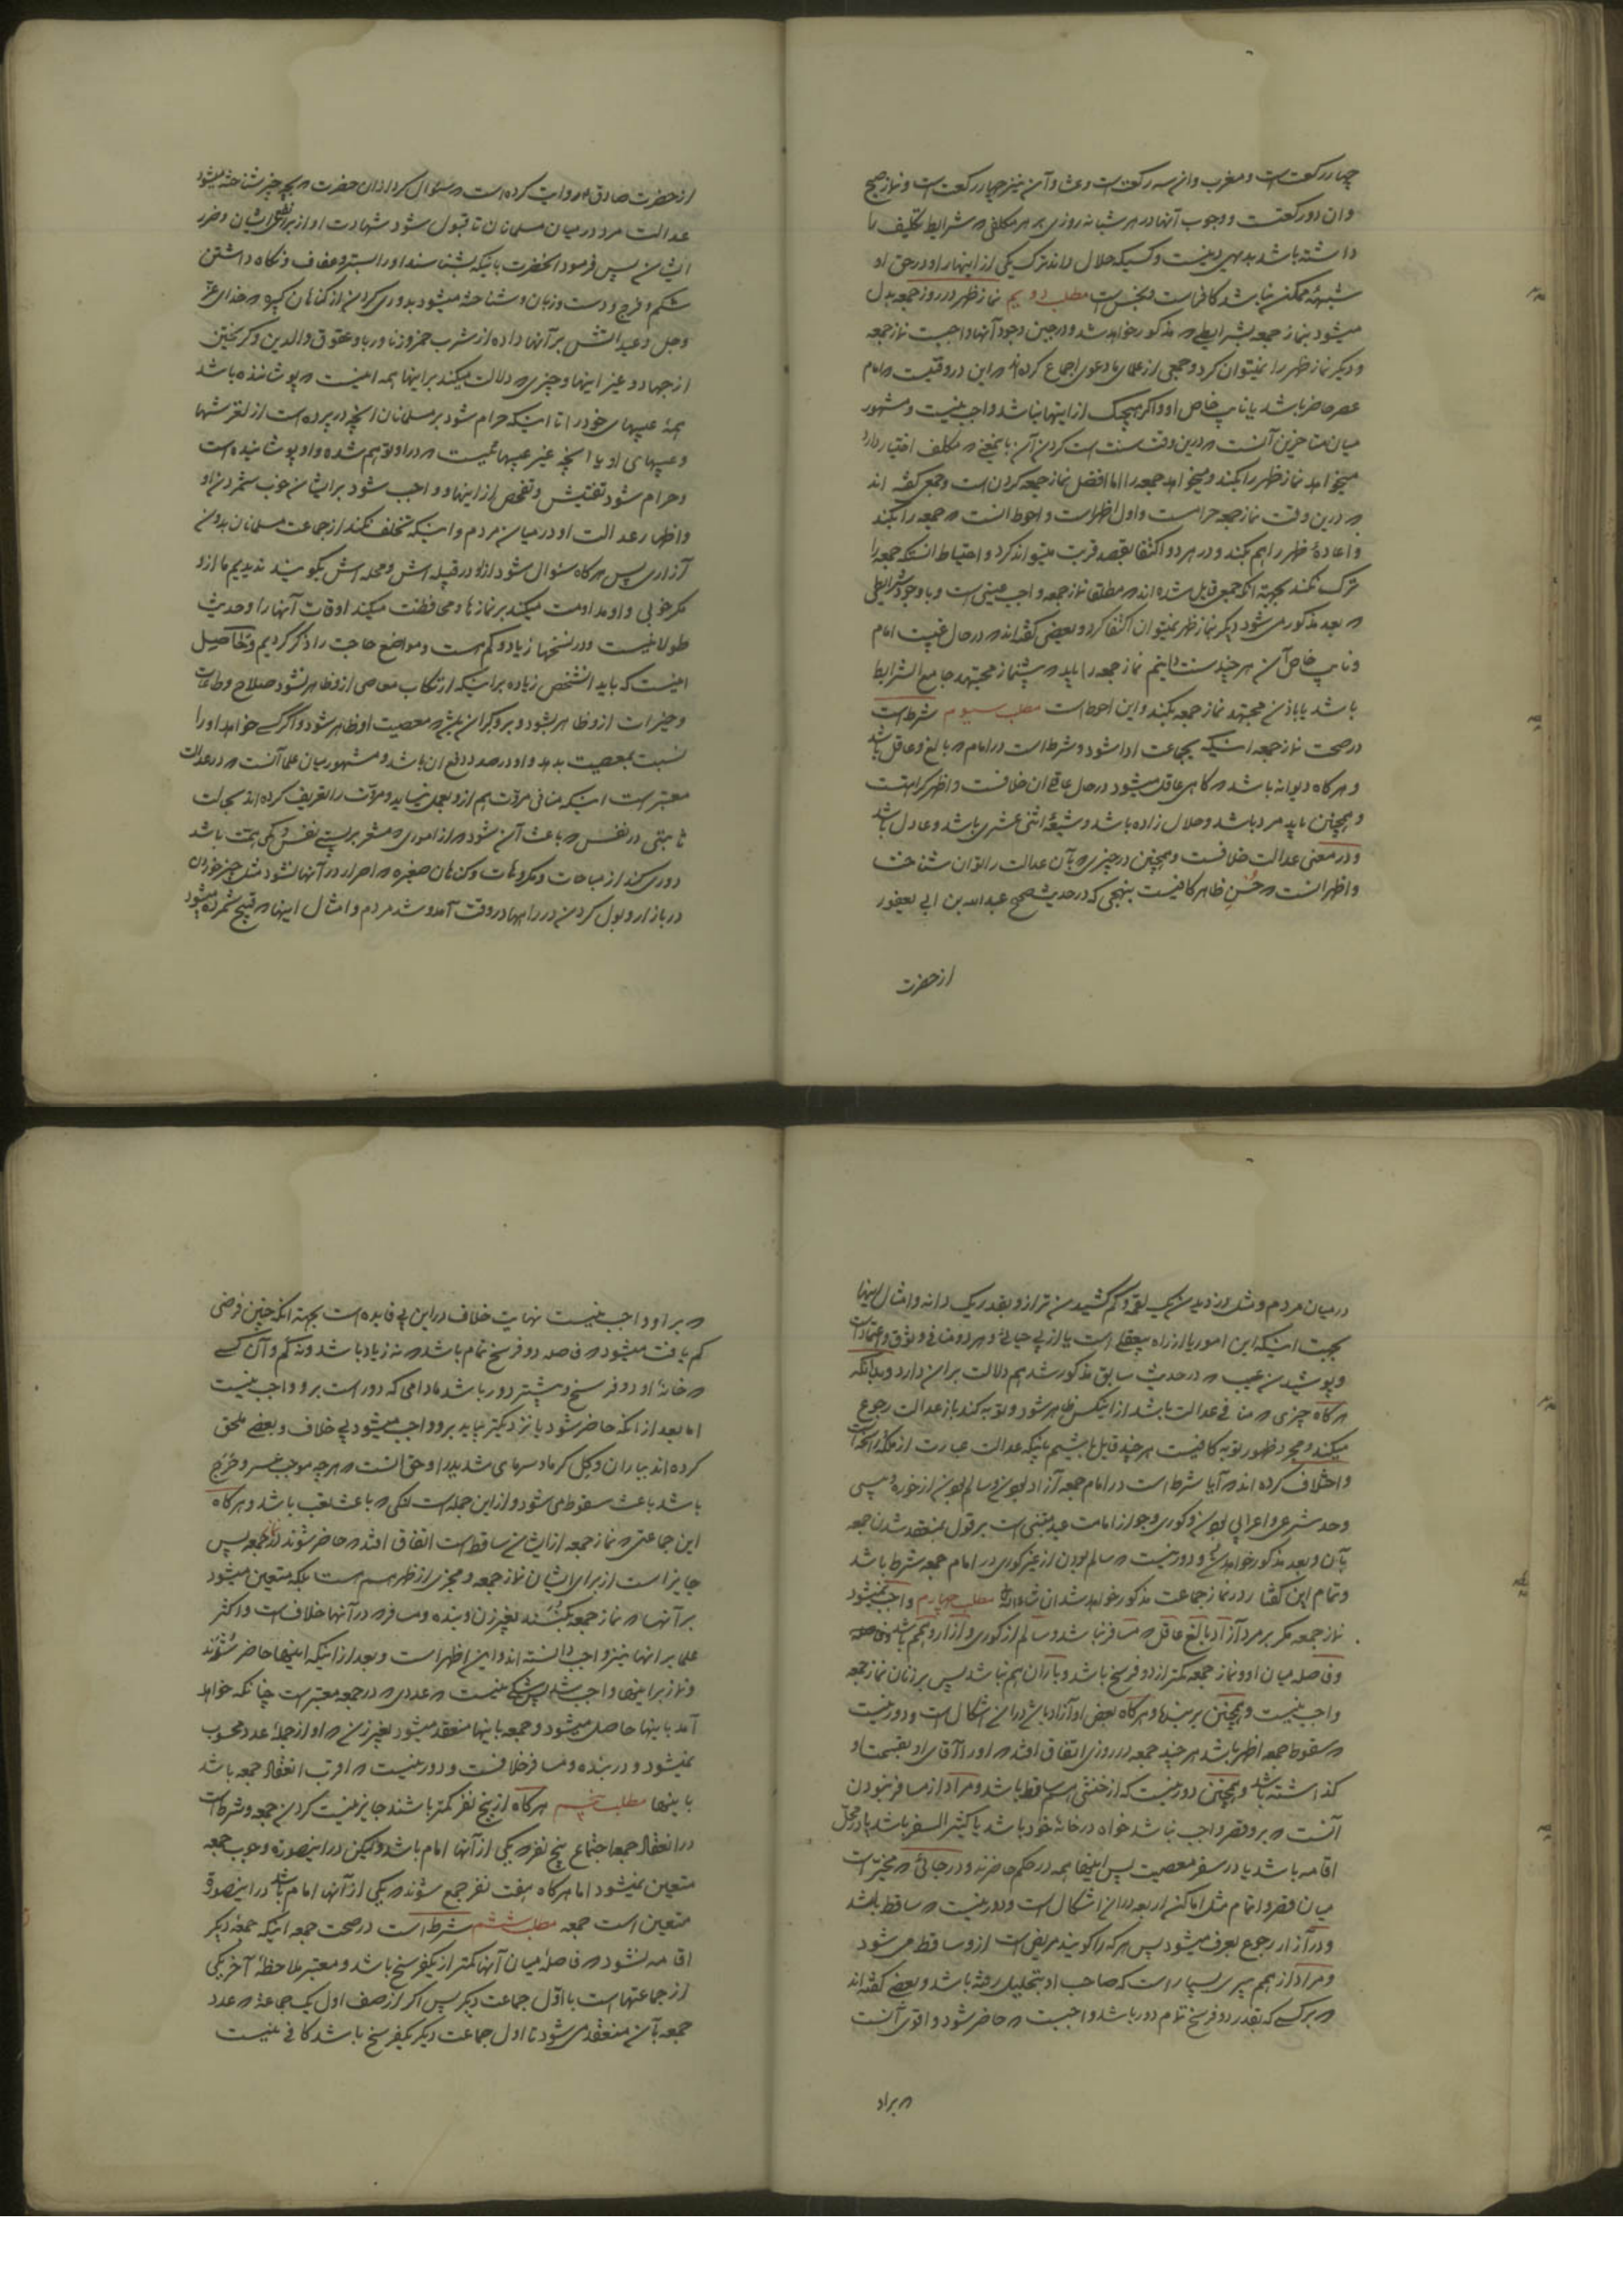 چهار رکعت است و مغرب و آن سه رکعت است و عشا و آن نیز چهار رکعت است و نماز صبح
و آن دو رکعتست و وجوب آنها در هر شبانه روزی بر هر مکلفی که شرایط تکلیف را
داشته باشد بدیهی دینست و کسیکه حلال داند ترک یکی از اینها را و در حق او
شبهه ممکن نباشد کافر است و نجس است مطلب دویم نماز ظهر در روز جمعه بدل
میشود بنماز جمعه بشرایطی که مذکور خواهد شد و در حین وجود آنها واجبست نماز جمعه
و دیگر نماز ظهر را نمیتوان کرد و جمعی از علما دعوی اجماع کرده اند که این در وقتیست که امام
عصر حاضر باشد یا نایب خاص او و اگر هیچیک از اینها نباشد واجب نیست و مشهور
میان متاخرین آنست که درین وقت سنت است کردن آن باینمعنی که مکلف اختیار دارد
میخواهد نماز ظهر را بکند و میخواهد جمعه را اما افضل نماز جمعه کردن است و جمعی گفته اند
که درین وقت نماز جمعه حرامست و اول اظهر است و احوط آنست که جمعه را بکند
و اعاده ظهر را هم بکند و در هر دو اکتفا بقصد قربت میتواند کرد و احتیاط آنستکه جمعه را
ترک نکند بجهة آنکه جمعی قایل شده اند که مطلقا نماز جمعه واجب عینی است و با وجود شرایطی
که بعد مذکور می شود دیگر نماز ظهر نمیتوان اکتفا کرد و بعضی گفته اند که در حال غیبت امام
و نایب خاص آن هر چند سنت دانیم نماز جمعه را باید که پیشنماز مجتهد جامع الشرایط
باشد یا باذن مجتهد نماز جمعه بکند و این احوط است مطلب سیوم شرط است
در صحت نماز جمعه اینکه بجماعت ادا شود و شرط است در امام که بالغ و عاقل باشد
و هر گاه دیوانه باشد که گاهی عاقل میشود در حال عاقلی آن خلافست و اظهر کراهتست
و همچنین باید مرد باشد و حلال زاده باشد و شیعه اثنی عشری باشد و عادل باشد
و در معنی عدالت خلافست و همچنین در چیزی که بآن عدالت را توان شناخت
و اظهر آنست که حُسن ظاهر کافیست بنهجی که در حدیث صحیح عبد الله بن ابی یعفور
از حضرت
از حضرت صادق ع روایت کرده است که سئوال کرد از ان حضرت که بچه چیز شناخته میشود
عدالت مرد در میان مسلمانان تا قبول شود شهادت او از برای نفع ایشان و ضرر
ایشان پس فرمود آنحضرت باینکه بشناسند او را بستر و عفاف و نگاه داشتن
شکم و فرج و دست و زبان و شناخته میشود بدوری کردن از گناهان کبیره که خدای عز
و جل وعید آتش بر آنها داده از شرب خمر و زنا و ربا و عقوق والدین و گریختن
از جهاد و غیر اینها و چیزی که دلالت میکند بر اینها همه اینست که پوشاننده باشد
همه عیبهای خود را تا اینکه حرام شود بر مسلمانان آنچه در پرده است از لغزشها
و عیبهای او یا آنچه غیر عیبهائیست که در او توهم شده و او پوشانیده است
و حرام شود تفتیش و تفحص از اینها و واجب شود بر ایشان خوب شمردن او
و اظهار عدالت او در میان مردم و اینکه تخلف نکند از جماعت مسلمانان بدون
آزاری پس هر گاه سئوال شود از او در قبیله اش و محله اش بگویند ندیدیم ما ازو
مگر خوبی و او مداومت میکند بر نمازها و محافظت میکند اوقات آنها را و حدیث
طولانیست و در نسخها زیاد و کم هست و مواضع حاجت را ذکر کردیم و حاصل
اینست که باید آنشخص زیاده بر اینکه ارتکاب معاصی ازو ظاهر نشود صلاح و طاعات
و خیرات ازو ظاهر بشود و بر دیگران معصیت او ظاهر شود و اگر کسی خواهد او را
نسبت بمعصیت بدهد او در صدد دفع ان باشد و مشهور میان علما آنست که در عدالت
معتبر است اینکه منافی مروت هم ازو بعمل نیاید و مروت را تعریف کرده اند بحالت
ثابتی در نفس که باعث آن شود که از اموری که مشعر بر پستی نفس و کمی همت باشد
دوری کند از مباحات و مکروهات و گناهان صغیره که اصرار در آنها نشود مثل چیز خوردن
در بازار و بول کردن در راهها در وقت آمد و شد مردم و امثال اینها که قبیح شمرده میشود
در میان مردم و مثل دزدیدن یک لقمه و کم کشیدن ترازو بقدر یک دانه و امثال اینها
بجهت اینکه این امور یا از راه بیعقلی است یا از بی حیائی و هر دو منافی وثوق و اعتماد است
و پوشیدن عیب که در حدیث سابق مذکور شد هم دلالت بر این دارد و بدانکه
هر گاه چیزی که منافی عدالت باشد از اینکس ظاهر شود و توبه کند باز عدالت رجوع
میکند و مجرد ظهور توبه کافیست هر چند قایل باشیم باینکه عدالت عبارت از ملکه راسخه است
و اختلاف کرده اند که آیا شرط است در امام جمعه آزاد بودن و سالم بودن از خوره و پیسی
و حد شرعی و اعرابی بودن و کوری و جواز امامت عبد مبتنی است بر قول بمنعقد شدن جمعه
بآن و بعد مذکور خواهد شد و دور نیست که سالم بودن از غیر کوری در امام جمعه شرط باشد
و تمام این گفتار در نماز جماعت مذکور خواهد شد ان شاء الله مطلب چهارم واجب نمیشود
نماز جمعه مگر بر مرد آزاد بالغ عاقل که مسافر نباشد و سالم از کوری و آزار و هم باشد
و فاصله میان او و نماز جمعه کمتر از دو فرسخ باشد و باران هم نباشد پس بر زنان نماز جمعه
واجب نیست و همچنین بر بندها و هر گاه بعض او آزاد باشد در ان اشکال است و دور نیست
که سقوط جمعه اظهر باشد هر چند جمعه در روزی اتفاق افتد که او را آقای او بقسمت او
گذاشته باشد و همچنین دور نیست که از خنثی هم ساقط باشد و مراد از مسافر نبودن
آنست که بر و قصر واجب نباشد خواه در خانه خود باشد یا کثیر السفر باشد یا در محل
اقامه باشد یا در سفر معصیت پس اینها همه در حکم حاضرند و در جائی که مخیر است
میان قصر و اتمام مثل اماکن اربعه در ان اشکال است و دور نیست که ساقط باشد
و در آزار رجوع بعرف میشود پس هر که را گویند مریض است ازو ساقط می شود
و مراد از هم پیری بسیار است که صاحب او بتحلیل رفته باشد و بعضی گفته اند
که بر کسی که بقدر دو فرسخ تمام دور باشد واجبست که حاضر شود و اقوی آنست
که بر او
که بر او واجب نیست نهایت خلاف در این بی فایده است بجهة آنکه چنین فرضی
کم یافت میشود که فاصله دو فرسخ تمام باشد که نه زیاد باشد و نه کم و آن کسی
که خانه او دو فرسخ و بیشتر دور باشد مادامی که دور است برو واجب نیست
اما بعد از آنکه حاضر شود یا نزدیکتر بیاید برو واجب میشود بی خلاف و بعضی ملحق
کرده اند بباران و گل گرما و سرمای شدید را و حق آنست که هر چه موجب عسر و حرج
باشد باعث سقوط می شود و از این جمله است لنگی که باعث تعب باشد و هر گاه
این جماعتی که نماز جمعه از ایشان ساقط است اتفاق افتد که حاضر شوند نماز جمعه پس
جایز است از برای ایشان نماز جمعه و مجزی از ظهر هم هست بلکه متعین میشود
بر آنها که نماز جمعه بکنند بغیر زن و بنده و مسافر که در آنها خلاف است و اکثر
علما بر انها نیز واجب دانسته اند و این اظهر است و بعد از اینکه اینها حاضر شوند
و نماز بر اینها واجب شد پس شکی نیست که عددی که در جمعه معتبر است چنانکه خواهد
آمد باینها حاصل میشود و جمعه باینها منعقد میشود بغیر زن که او از جمله عدد محسوب
نمیشود و در بنده و مسافر خلافست و دور نیست که اقرب انعقاد جمعه باشد
باینها مطلب پنجم هر گاه از پنج نفر کمتر باشند جایز نیست کردن جمعه و شرط است
در انعقاد جمعه اجتماع پنج نفر که یکی از آنها امام باشد و لیکن در اینصورة وجوب جمعه
متعین نمیشود اما هر گاه هفت نفر جمع شوند که یکی از آنها امام باشد در اینصورة
متعین است جمعه مطلب ششم شرط است در صحت جمعه اینکه جمعه دیگر
اقامه نشود که فاصله میان آنها کمتر از یکفرسخ باشد و معتبر ملاحظه آخر یکی
از جماعتها است با اول جماعت دیگر پس اگر از صف اول یک جماعة که عدد
جمعه بآن منعقد می شود تا اول جماعت دیگر یکفرسخ باشد کافی نیست